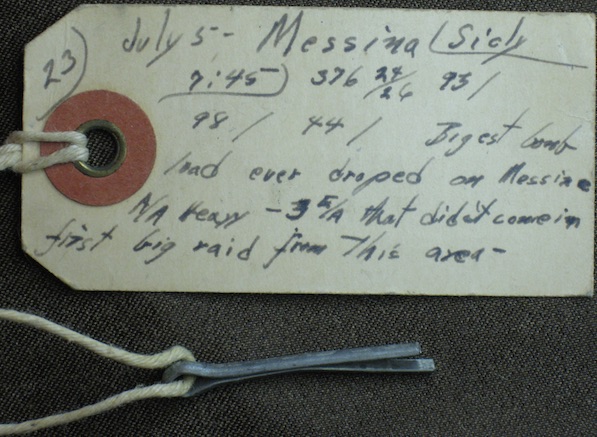 23) July 5 - Messina (Sicily
7:45) 376 24/26 93/
98/ 44/ Bigest bomb
load ever droped on Messine
N/A Heavy - 3 E/A that didn't come in
first big raid from This area -